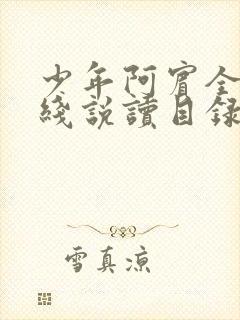 少年阿賓全
綫説讀目錄
雪真凉